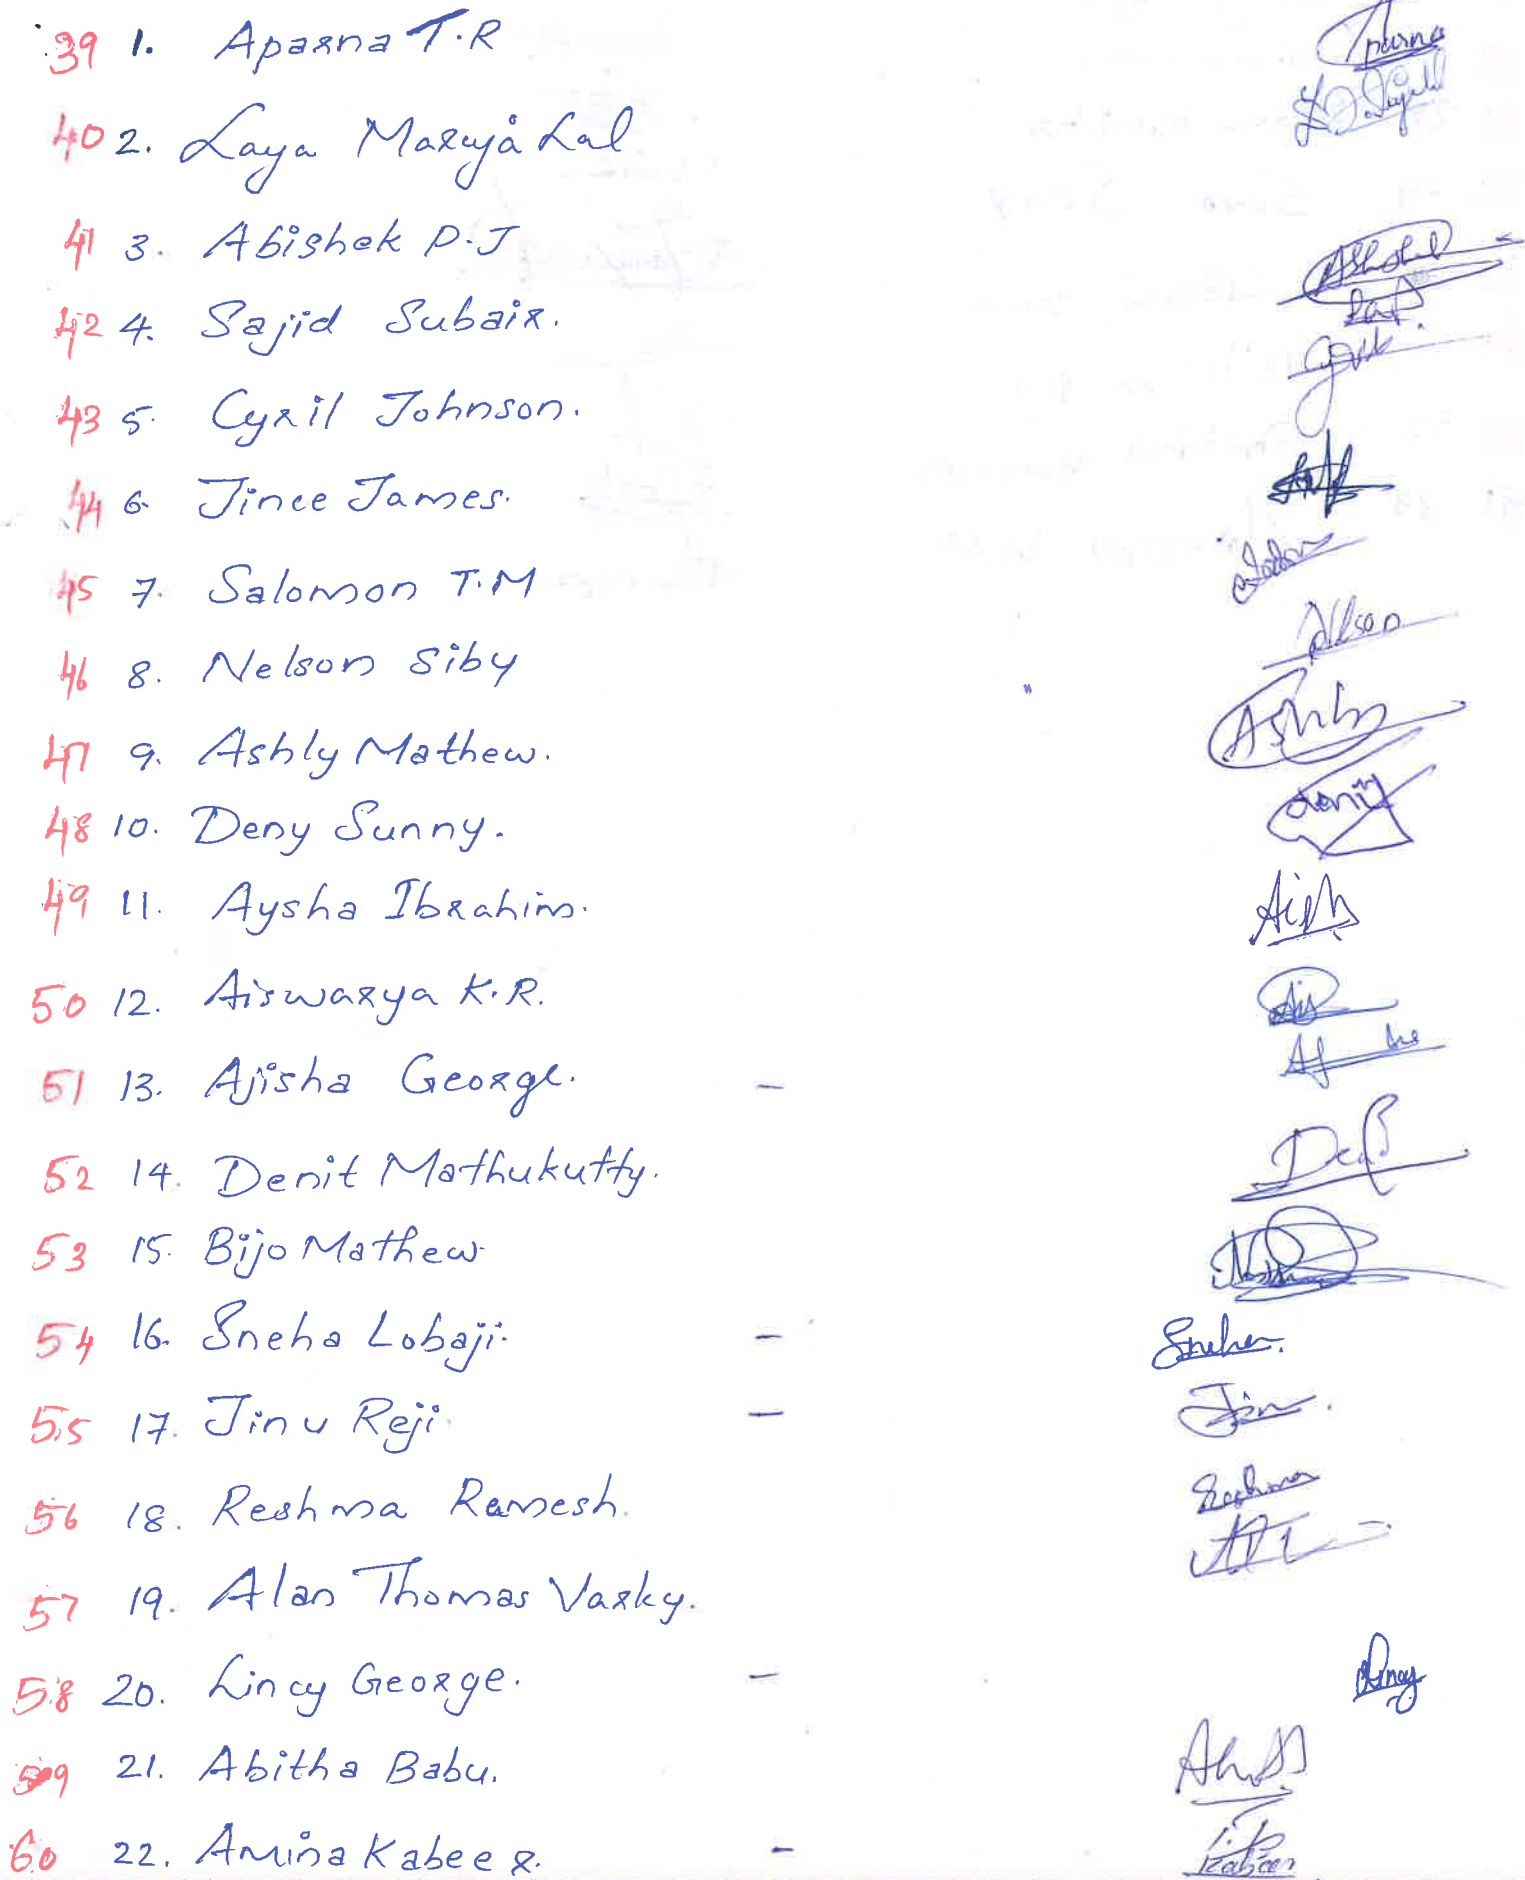 39 1. Aparna T.R
40 2. Laya Marya Lal
41 3. Abishek P.J
42 4. Sajid Subair.
43 5. Cyril Johnson.
44 6. Jince James.
45 7. Salomon T.M
46 8. Nelson Siby Nelson
47 9. Ashly Mathew. Ashly
48 10. Deny Sunny.
49 11. Aysha Ibrahim.
50 12. Aiswarya K.R.
51 13. Ajisha George. -
52 14. Denit Mathukutty.
53 15. Bijo Mathew
54 16. Sneha Lobaji. - Sneha.
55 17. Jinu Reji. -
56 18. Reshma Ramesh. Reshma
57 19. Alan Thomas Varky.
58 20. Lincy George. - Lincy
59 21. Abitha Babu.
60 22. Amina Kabeer. -